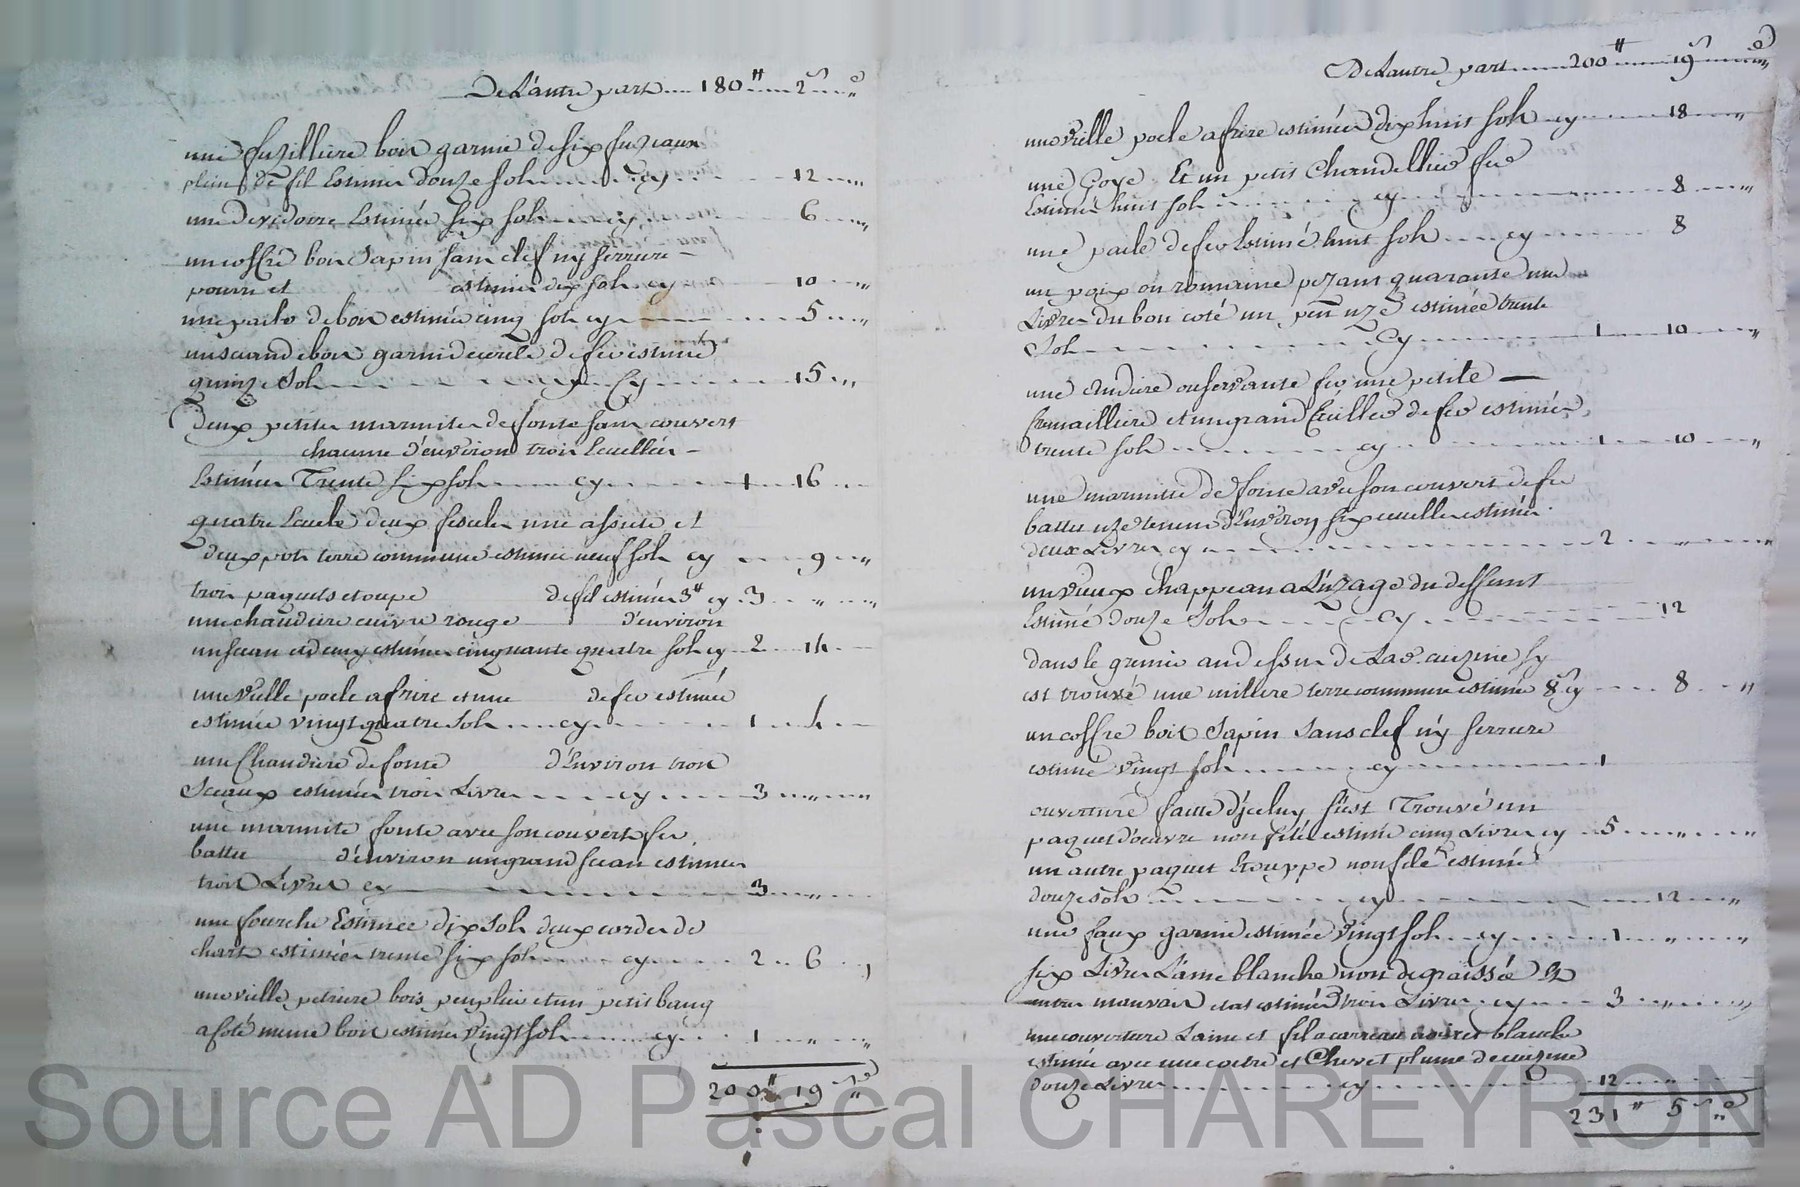 De L'autre part .... 180ᵗᵗ .... 2ˢ .... "ᵈ
une fuzilliere bois garnie de six fuzeaux
plein de fil Estimée douze sols ...... cy ...... 12 .... "
une devidoire Estimée six sols ...... cy ...... 6 .... "
un coffre bois Sapin sans clef ny serrure –
pourri et estimée dix sols cy ...... 10 .... "
une paile de bois estimée cinq sols cy ...... 5 .... "
un seau de bois garni de cercle de fer estimé
quinze Sols ...... Cy ...... 15 .... "
deux petites marmites de fonte sans couvert
chacune d'environ trois Ecuellées –
Estimées Trente six sols ...... cy ...... 1 .. 16 ....
quatre Ecuele deux une assiete et
deux pots terre commune estimé neuf sols cy ...... 9 .... "
trois paquets etoupe de fil estimées 3ᵗᵗ cy . 3 .... " .... "
une chaudiere cuivre rouge d'environ
un seau et demy estimée cinquante quatre sols cy .. 2 .. 14 ..
une vielle poele a frire et une de fer estimée
estimée vingt quatre Sols .... cy ...... 1 .... 4 ....
une Chaudiere de fonte d'Environ trois
Sceaux estimée trois Livres ...... cy ...... 3 .... " .... "
une marmite fonte avec son couvert fer
battu d'environ un grand seau estimée
trois Livres cy ...... 3 .... " ....
une fourche Estimée dix Sols deux cordes de
chars estimées trente six sols ...... cy ...... 2 .. 6 .. ,
une vielle petriere bois peuplier et un petit banq
a coté meme bois estimée vingt sols ...... cy ...... 1 .... " .... "
200ᵗᵗ 19ˢ "ᵈ
De L'autre part ...... 200ᵗᵗ ...... 19ˢ .... "ᵈ
une vielle poele a frire estimée dix huit sols cy ...... 18 .... "
une Goye Et un petit Chandellier fer
Estimée huit sols ...... cy ...... 8 .... "
une paile de fer Estimé huit sols .... cy ...... 8
un poix ou romaine pezant quarante une
Livres du bon coté un peu uzé estimée trente
Sols ...... Cy ...... 1 .... 10 .... "
une Andiere ou servante fer, une petite —
cremailliere et un grand Cuiller de fer estimées
trente sols ...... cy ...... 1 .... 10 .... "
une marmitte de fonte avec son couvert de fer
battu uzé tenant d'Environ six ecuelles estimée
deux Livres cy ...... 2 .... " .... "
un vieux chappeau a L'uzage du deffunt
Estimé douze Sols ...... Cy ...... 12
dans le grenie au dessus de La cuizine sy
est trouvé une millere terre commune estimée 8ˢ cy .... 8 .... "
un coffre bois Sapin sans clef ny serrure
estimé vingt sols ...... cy ...... 1
ouverture faitte d'jceluy s'est Trouvé un
paquet d'oeuvre non filé estimé cinq Livres cy .. 5 .... " .... "
un autre paquet Etouppe non filé estimé
douze sols ...... cy ...... 12 .... "
une faux garnie estimée Vingt sols .... cy ...... 1 .... " .... "
six Livres Laine blanche non degraissée Et
en tres mauvais etat estimée trois Livres .. cy ...... 3 .... " .... "
une couverture Laine et fil a carreau et blanche
estimée avec une coetre et Chevet plume de cuizine
douze Livres ...... cy ...... 12 .... "
231ᵗᵗ 5ˢ "ᵈ
Source AD Pascal CHAREYRON